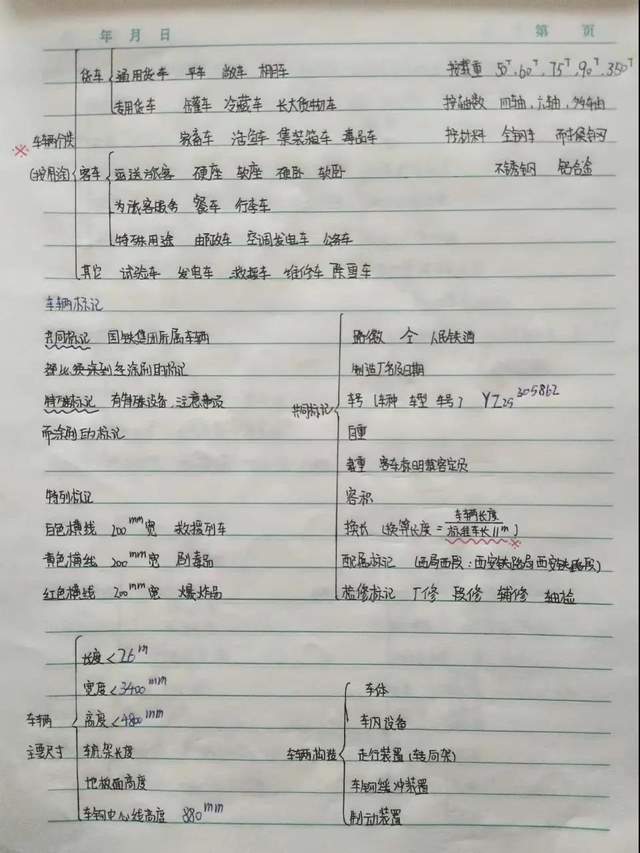 年 月 日 第 页
货车 通用货车 平车 敞车 棚车 按载重 50T、60T、75T、90T、350T
专用货车 罐车 冷藏车 长大货物车 按轴数 四轴、六轴、多轴
※ 车辆分类 家畜车 活鱼车 集装箱车 毒品车 按材料 全钢车 耐候钢
(按用途) 客车 运送旅客 硬座 软座 硬卧 软卧 不锈钢 铝合金
为旅客服务 餐车 行李车
特殊用途 邮政车 空调发电车 公务车
其它 试验车 发电车 救援车 维修车 除雪车
车辆标记
共同标记 国铁集团所属车辆 路徽 人民铁道
都必须涂刷的标记 制造厂名及日期
特殊标记 有特殊设备、注意事项 共同标记 车号(车种 车型 车号) YZ25 305862
而涂刷的标记 自重
载重 客车标明载客定员
特别标记 容积
白色横线 200mm宽 救援列车 换长(换算长度=车辆长度/标准车长11m) ※
黄色横线 200mm宽 剧毒品 配属标记 (西局西段:西安铁路局西安铁路段)
红色横线 200mm宽 爆炸品 检修标记 厂修 段修 辅修 轴检
长度<26m
宽度<3400mm 车体
车辆 高度<4800mm 车内设备
主要尺寸 车底架长度 车辆构造 走行装置(转向架)
地板面高度 车钩缓冲装置
车钩中心线高度 880mm 制动装置